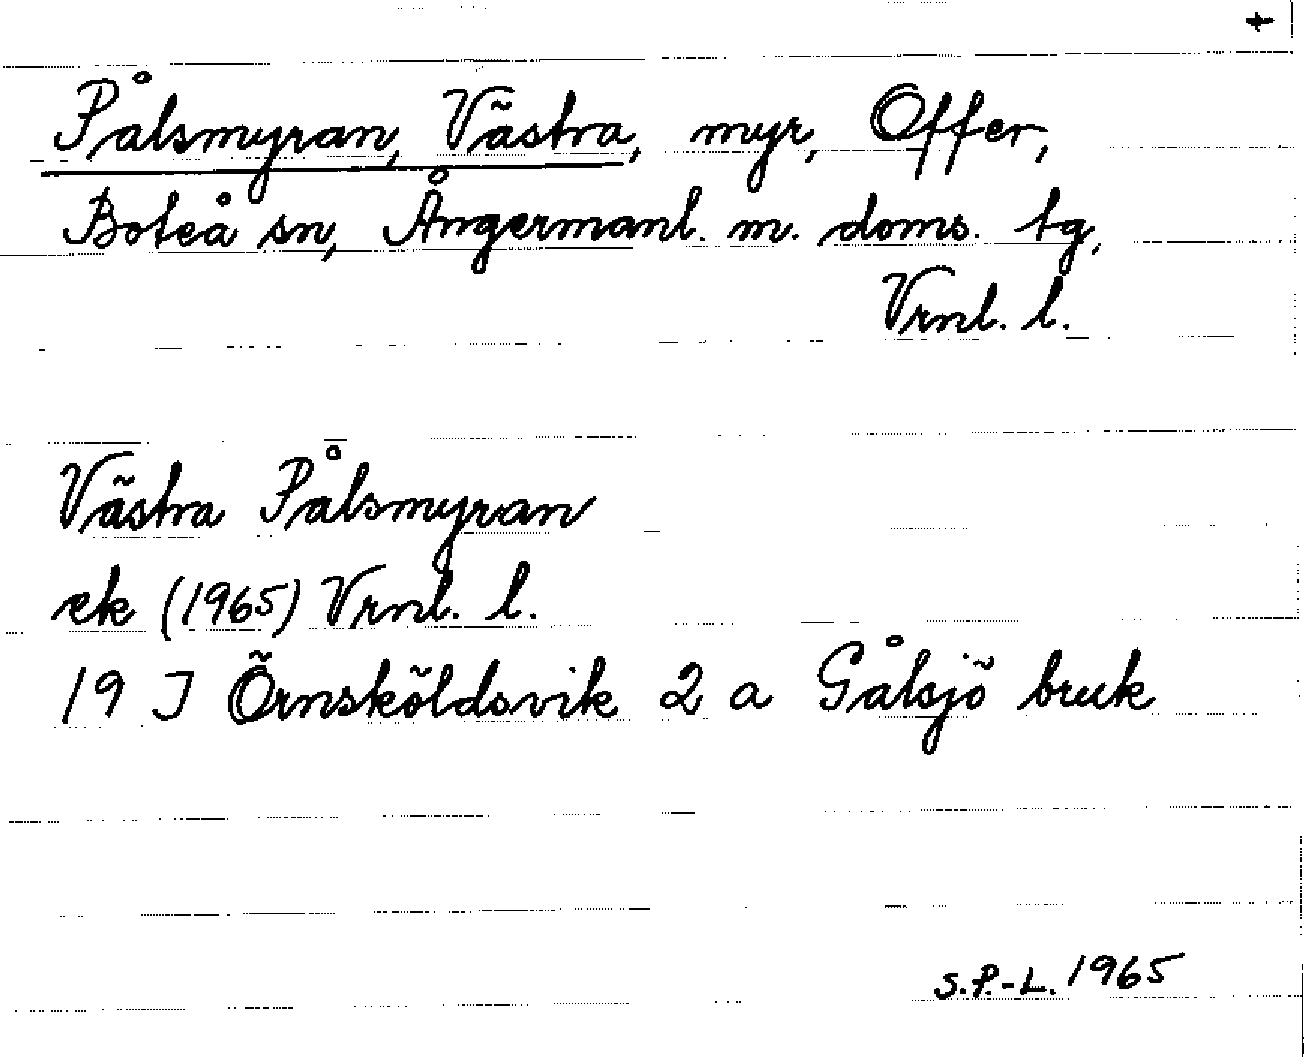 +
Pålsmyran, Västra, myr, Offer,
Boteå sn, Ångermanl. m. doms. tg,
Vrnl. l.
Västra Pålsmyran
ek (1965) Vrnl. l.
19 J Örnsköldsvik 2 a Gålsjö bruk
S.P.-L. 1965